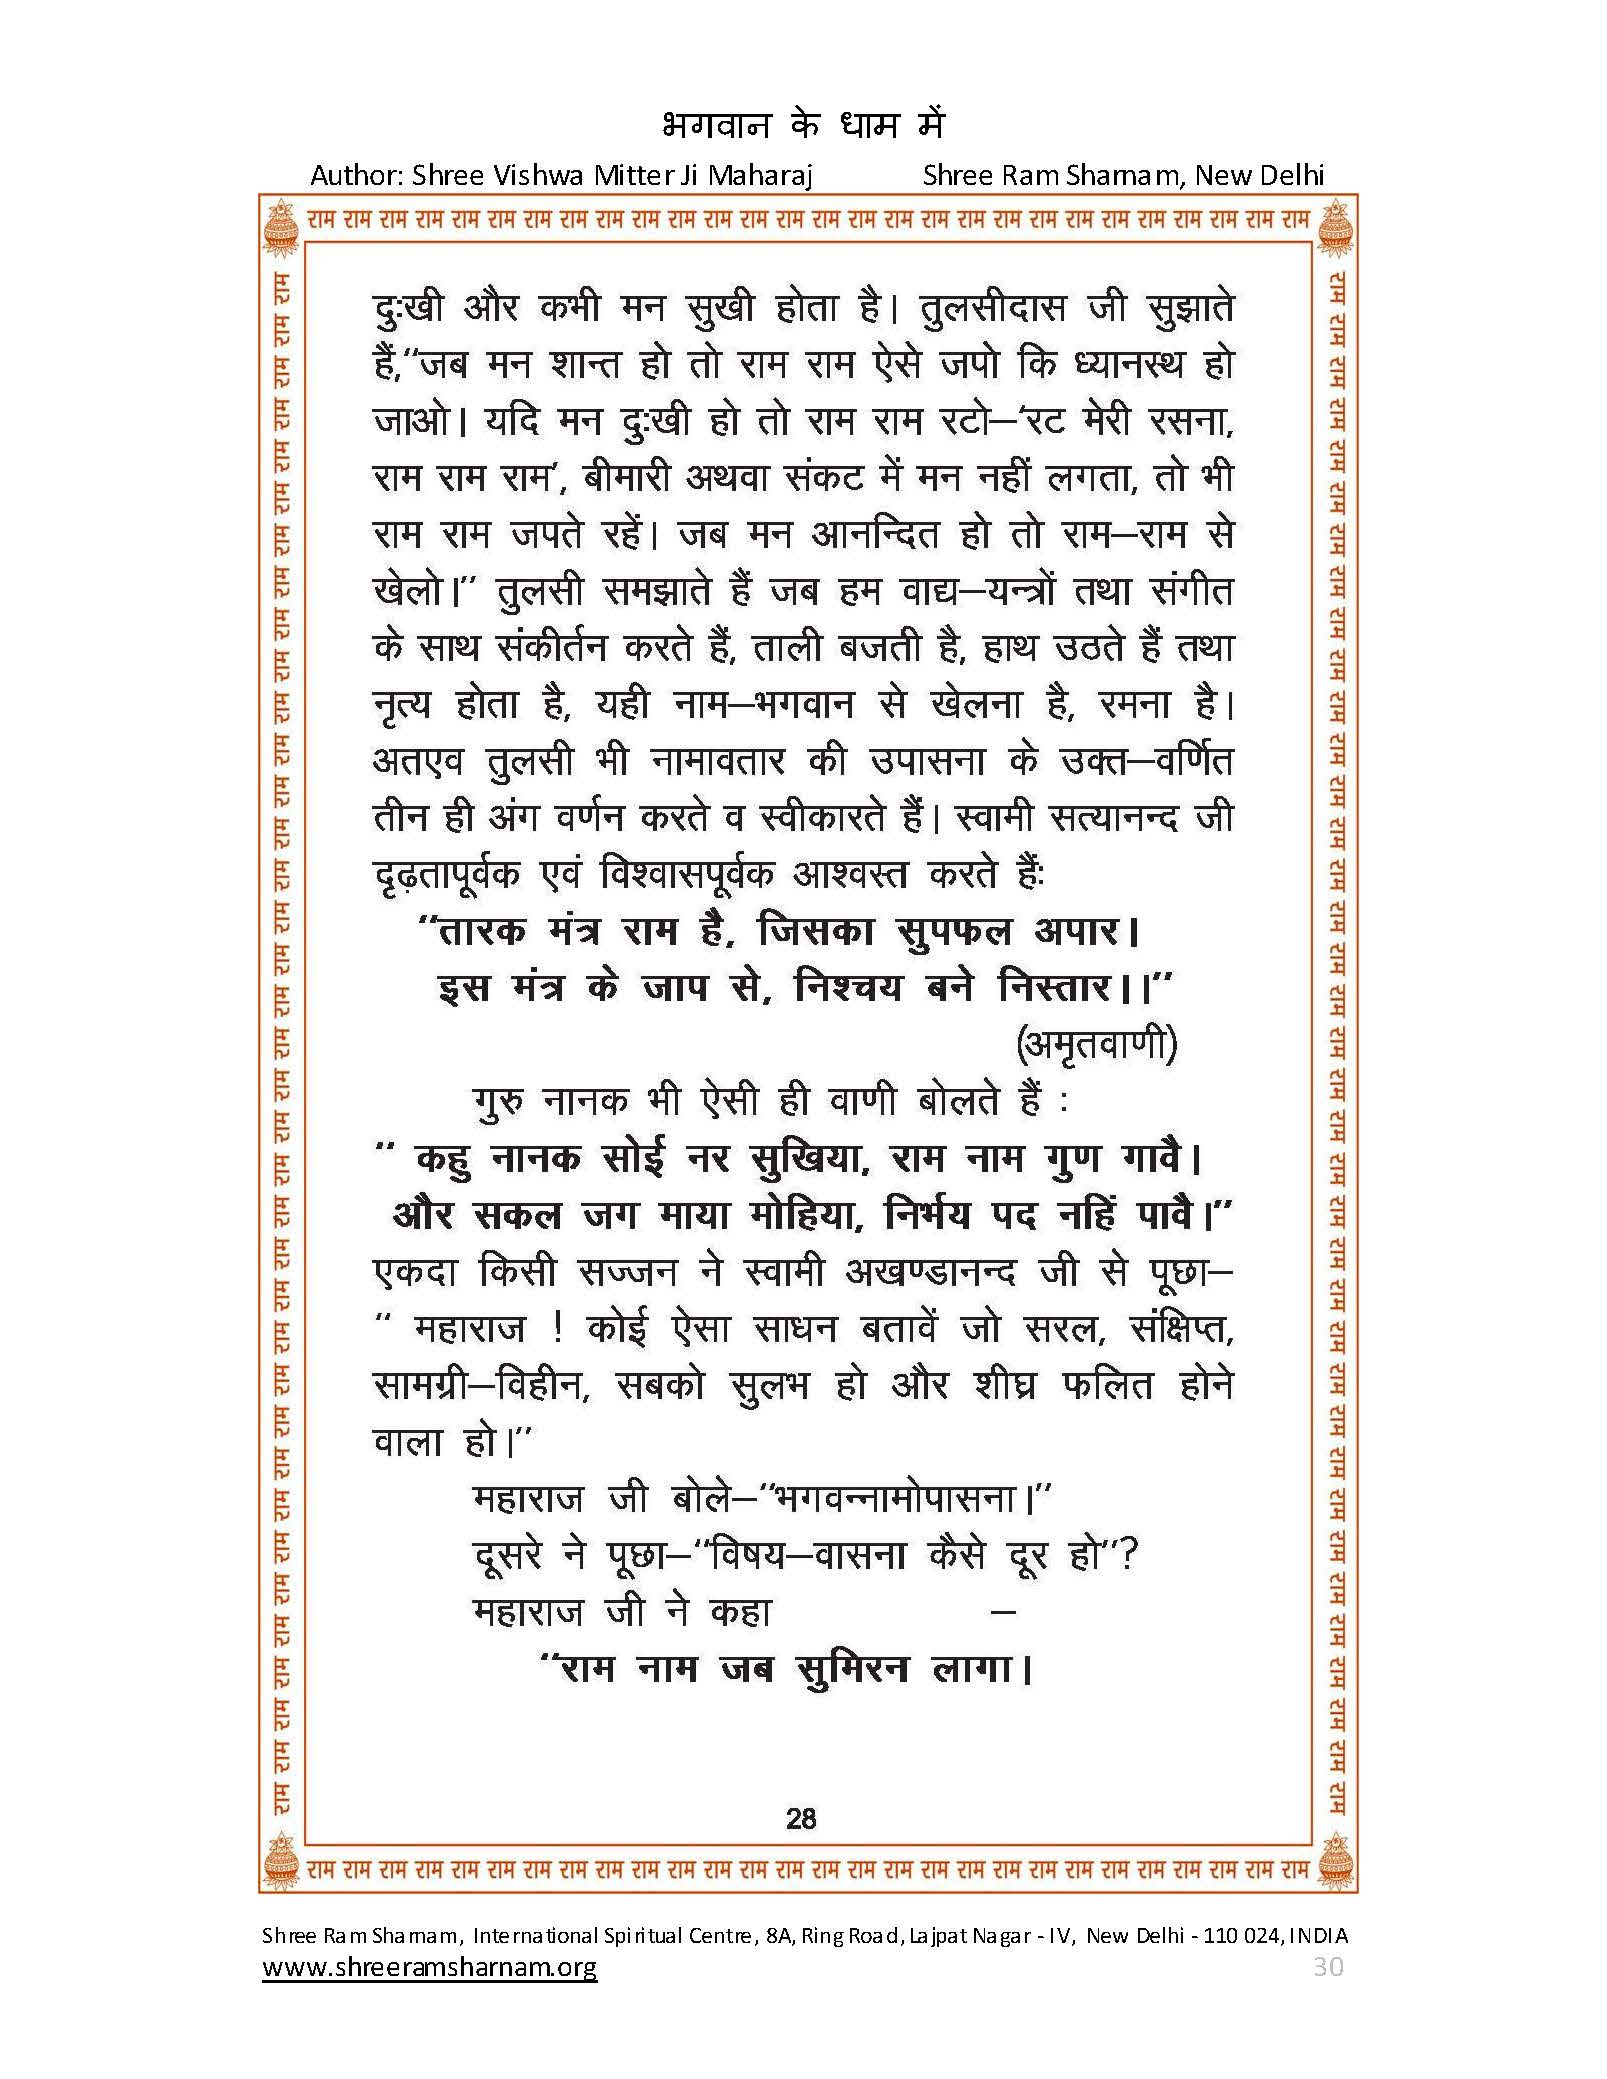 भगवान के धाम में
Author: Shree Vishwa Mitter Ji Maharaj Shree Ram Sharnam, New Delhi
राम राम राम राम राम राम राम राम राम राम राम राम राम राम राम राम राम राम राम राम राम राम राम राम राम राम राम राम
दुःखी और कभी मन सुखी होता है। तुलसीदास जी सुझाते
हैं,“जब मन शान्त हो तो राम राम ऐसे जपो कि ध्यानस्थ हो
जाओ। यदि मन दुःखी हो तो राम राम रटो–‘रट मेरी रसना,
राम राम राम’, बीमारी अथवा संकट में मन नहीं लगता, तो भी
राम राम जपते रहें। जब मन आनन्दित हो तो राम–राम से
खेलो।” तुलसी समझाते हैं जब हम वाद्य–यन्त्रों तथा संगीत
के साथ संकीर्तन करते हैं, ताली बजती है, हाथ उठते हैं तथा
नृत्य होता है, यही नाम–भगवान से खेलना है, रमना है।
अतएव तुलसी भी नामावतार की उपासना के उक्त–वर्णित
तीन ही अंग वर्णन करते व स्वीकारते हैं। स्वामी सत्यानन्द जी
दृढ़तापूर्वक एवं विश्वासपूर्वक आश्वस्त करते हैंः
“तारक मंत्र राम है, जिसका सुपफल अपार।
इस मंत्र के जाप से, निश्चय बने निस्तार।।”
(अमृतवाणी)
गुरु नानक भी ऐसी ही वाणी बोलते हैं :
“ कहु नानक सोई नर सुखिया, राम नाम गुण गावै।
और सकल जग माया मोहिया, निर्भय पद नहिं पावै।”
एकदा किसी सज्जन ने स्वामी अखण्डानन्द जी से पूछा–
“ महाराज ! कोई ऐसा साधन बतावें जो सरल, संक्षिप्त,
सामग्री–विहीन, सबको सुलभ हो और शीघ्र फलित होने
वाला हो।”
महाराज जी बोले–“भगवन्नामोपासना।”
दूसरे ने पूछा–“विषय–वासना कैसे दूर हो”?
महाराज जी ने कहा –
“राम नाम जब सुमिरन लागा।
28
राम राम राम राम राम राम राम राम राम राम राम राम राम राम राम राम राम राम राम राम राम राम राम राम राम राम राम राम
Shree Ram Sharnam, International Spiritual Centre, 8A, Ring Road, Lajpat Nagar - IV, New Delhi - 110 024, INDIA
www.shreeramsharnam.org 30